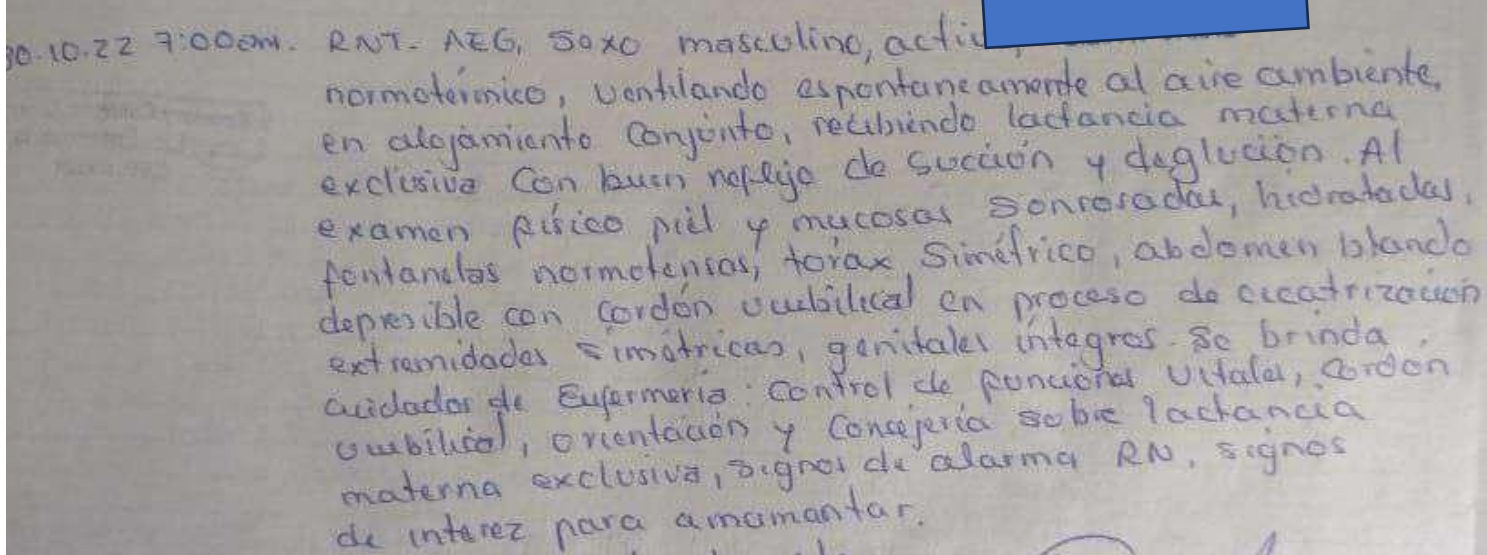 30.10.22 7:00am. RNT. AEG, Soxo masculino, activ
normotérmico, ventilando espontaneamente al aire ambiente,
en alojamiento Conjunto, recibiendo lactancia materna
exclusiva Con buen reflejo de Succión y deglución. Al
examen físico piel y mucosas Sonrosadas, hidratadas,
fontanelas normotensas, tórax Simétrico, abdomen blando
depresible con Cordón umbilical en proceso de cicatrización
extremidades simétricas, genitales íntegros. Se brinda
cuidados de Enfermería: Control de funciones Vitales, Cordón
umbilical, orientación y Concejería sobre lactancia
materna exclusiva, signos de alarma RN, signos
de interez para amamantar.